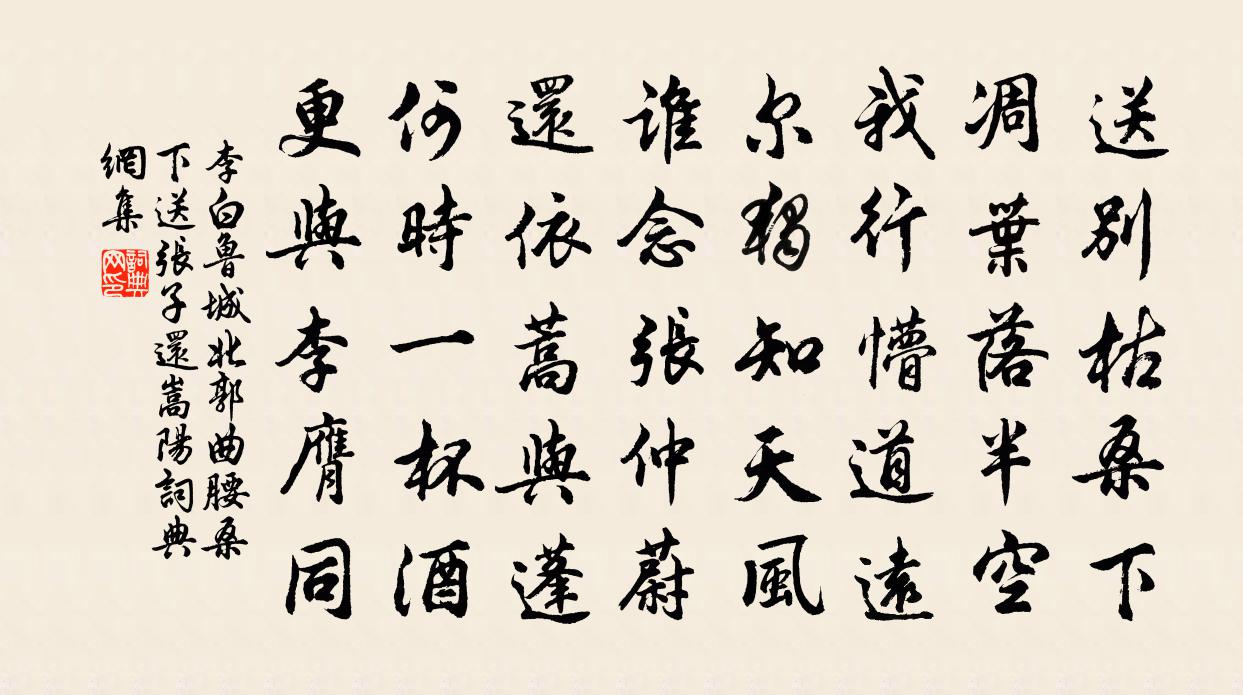 送别枯桑下
凋葉落半空
我行懵道遠
尔獨知天風
誰念張仲蔚
還依蒿與蓬
何時一杯酒
更與李膺同
李白魯城北郭曲腰桑
下送張子還嵩陽詞典
網集
詞典
网印